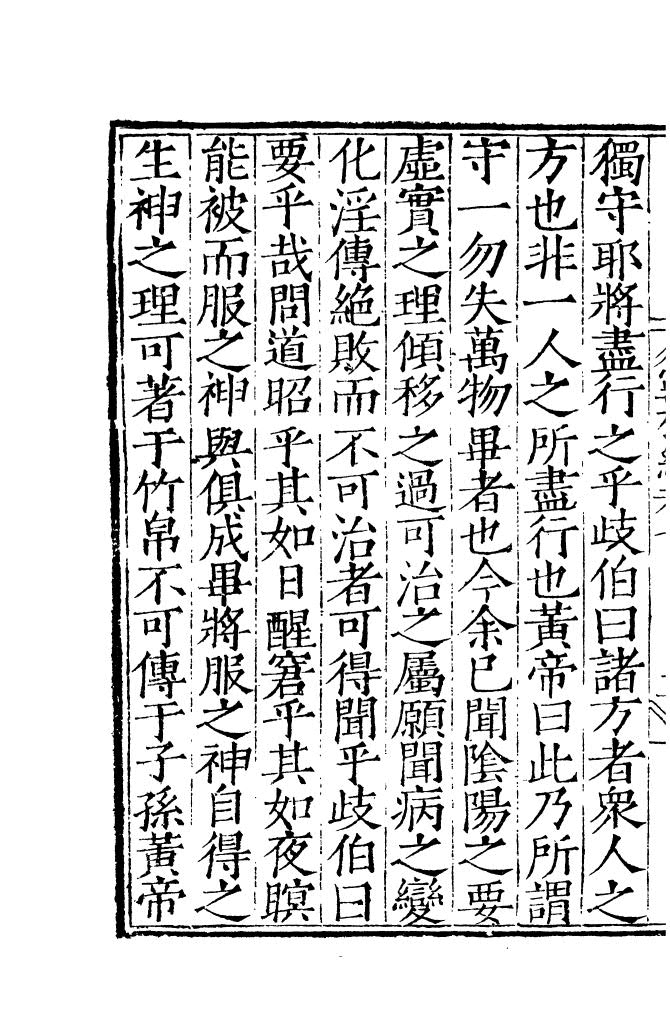 獨守耶將盡行之乎歧伯曰諸方者衆人之
方也非一人之所盡行也黃帝曰此乃所謂
守一勿失萬物畢者也今余已聞陰陽之要
虛實之理傾移之過可治之屬願聞病之變
化淫傳絕敗而不可治者可得聞乎歧伯曰
要乎哉問道昭乎其如日醒窘乎其如夜瞑
能被而服之神與俱成畢將服之神自得之
生神之理可著于竹帛不可傳于子孫黃帝